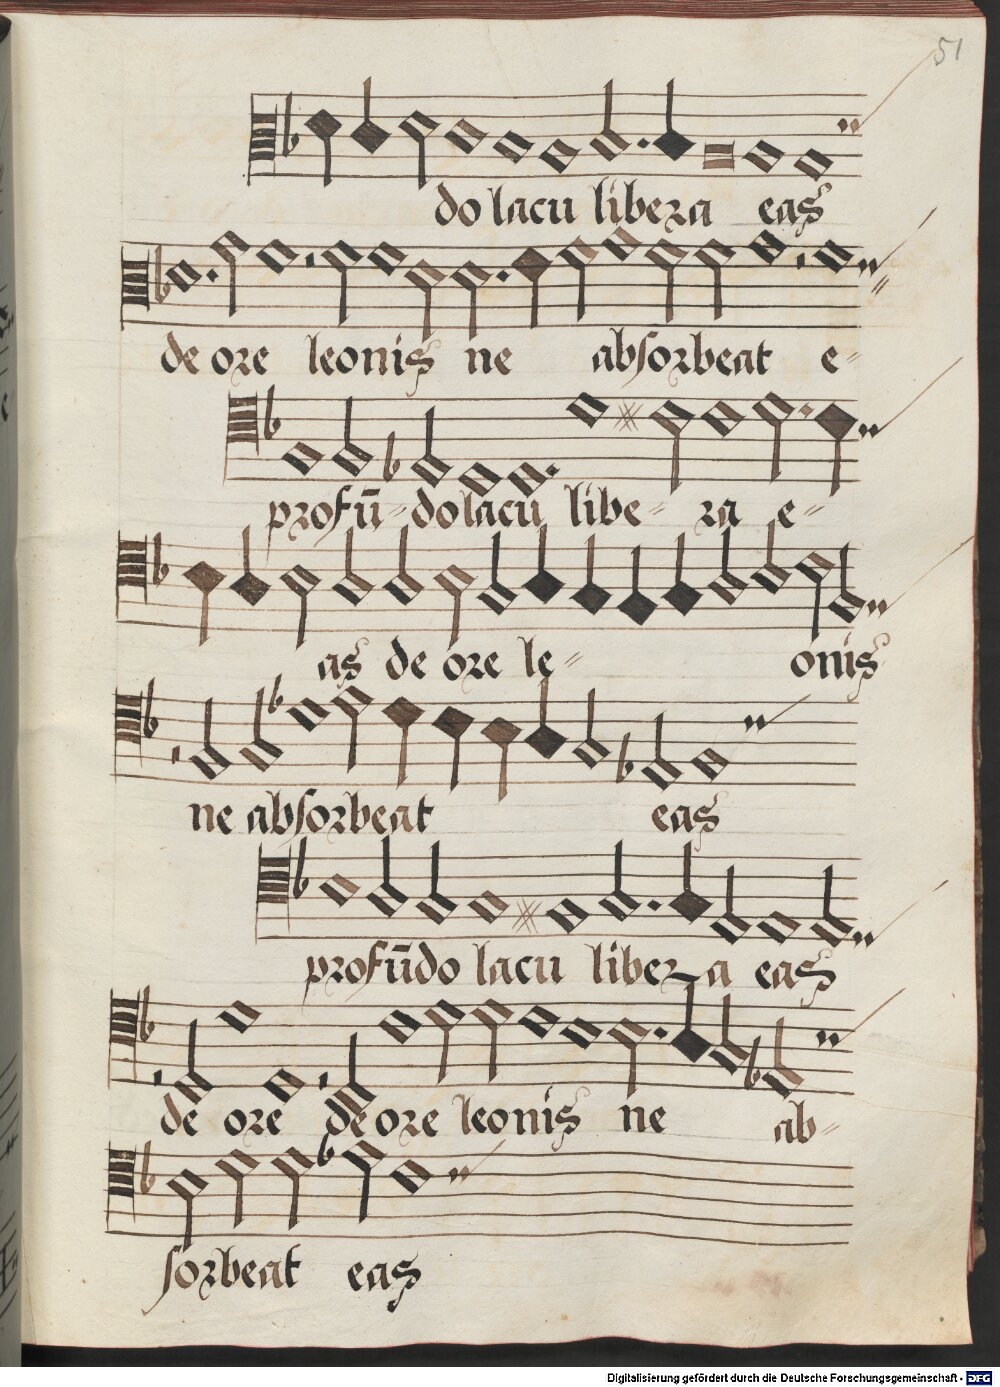 51
do lacu libera eas
de ore leonis ne absorbeat e=
profū=do lacu libe= ra e=
as de ore le= onis
ne absorbeat eas
profūdo lacu libera eas
de ore de ore leonis ne ab=
sorbeat eas
Digitalisierung gefördert durch die Deutsche Forschungsgemeinschaft - DFG